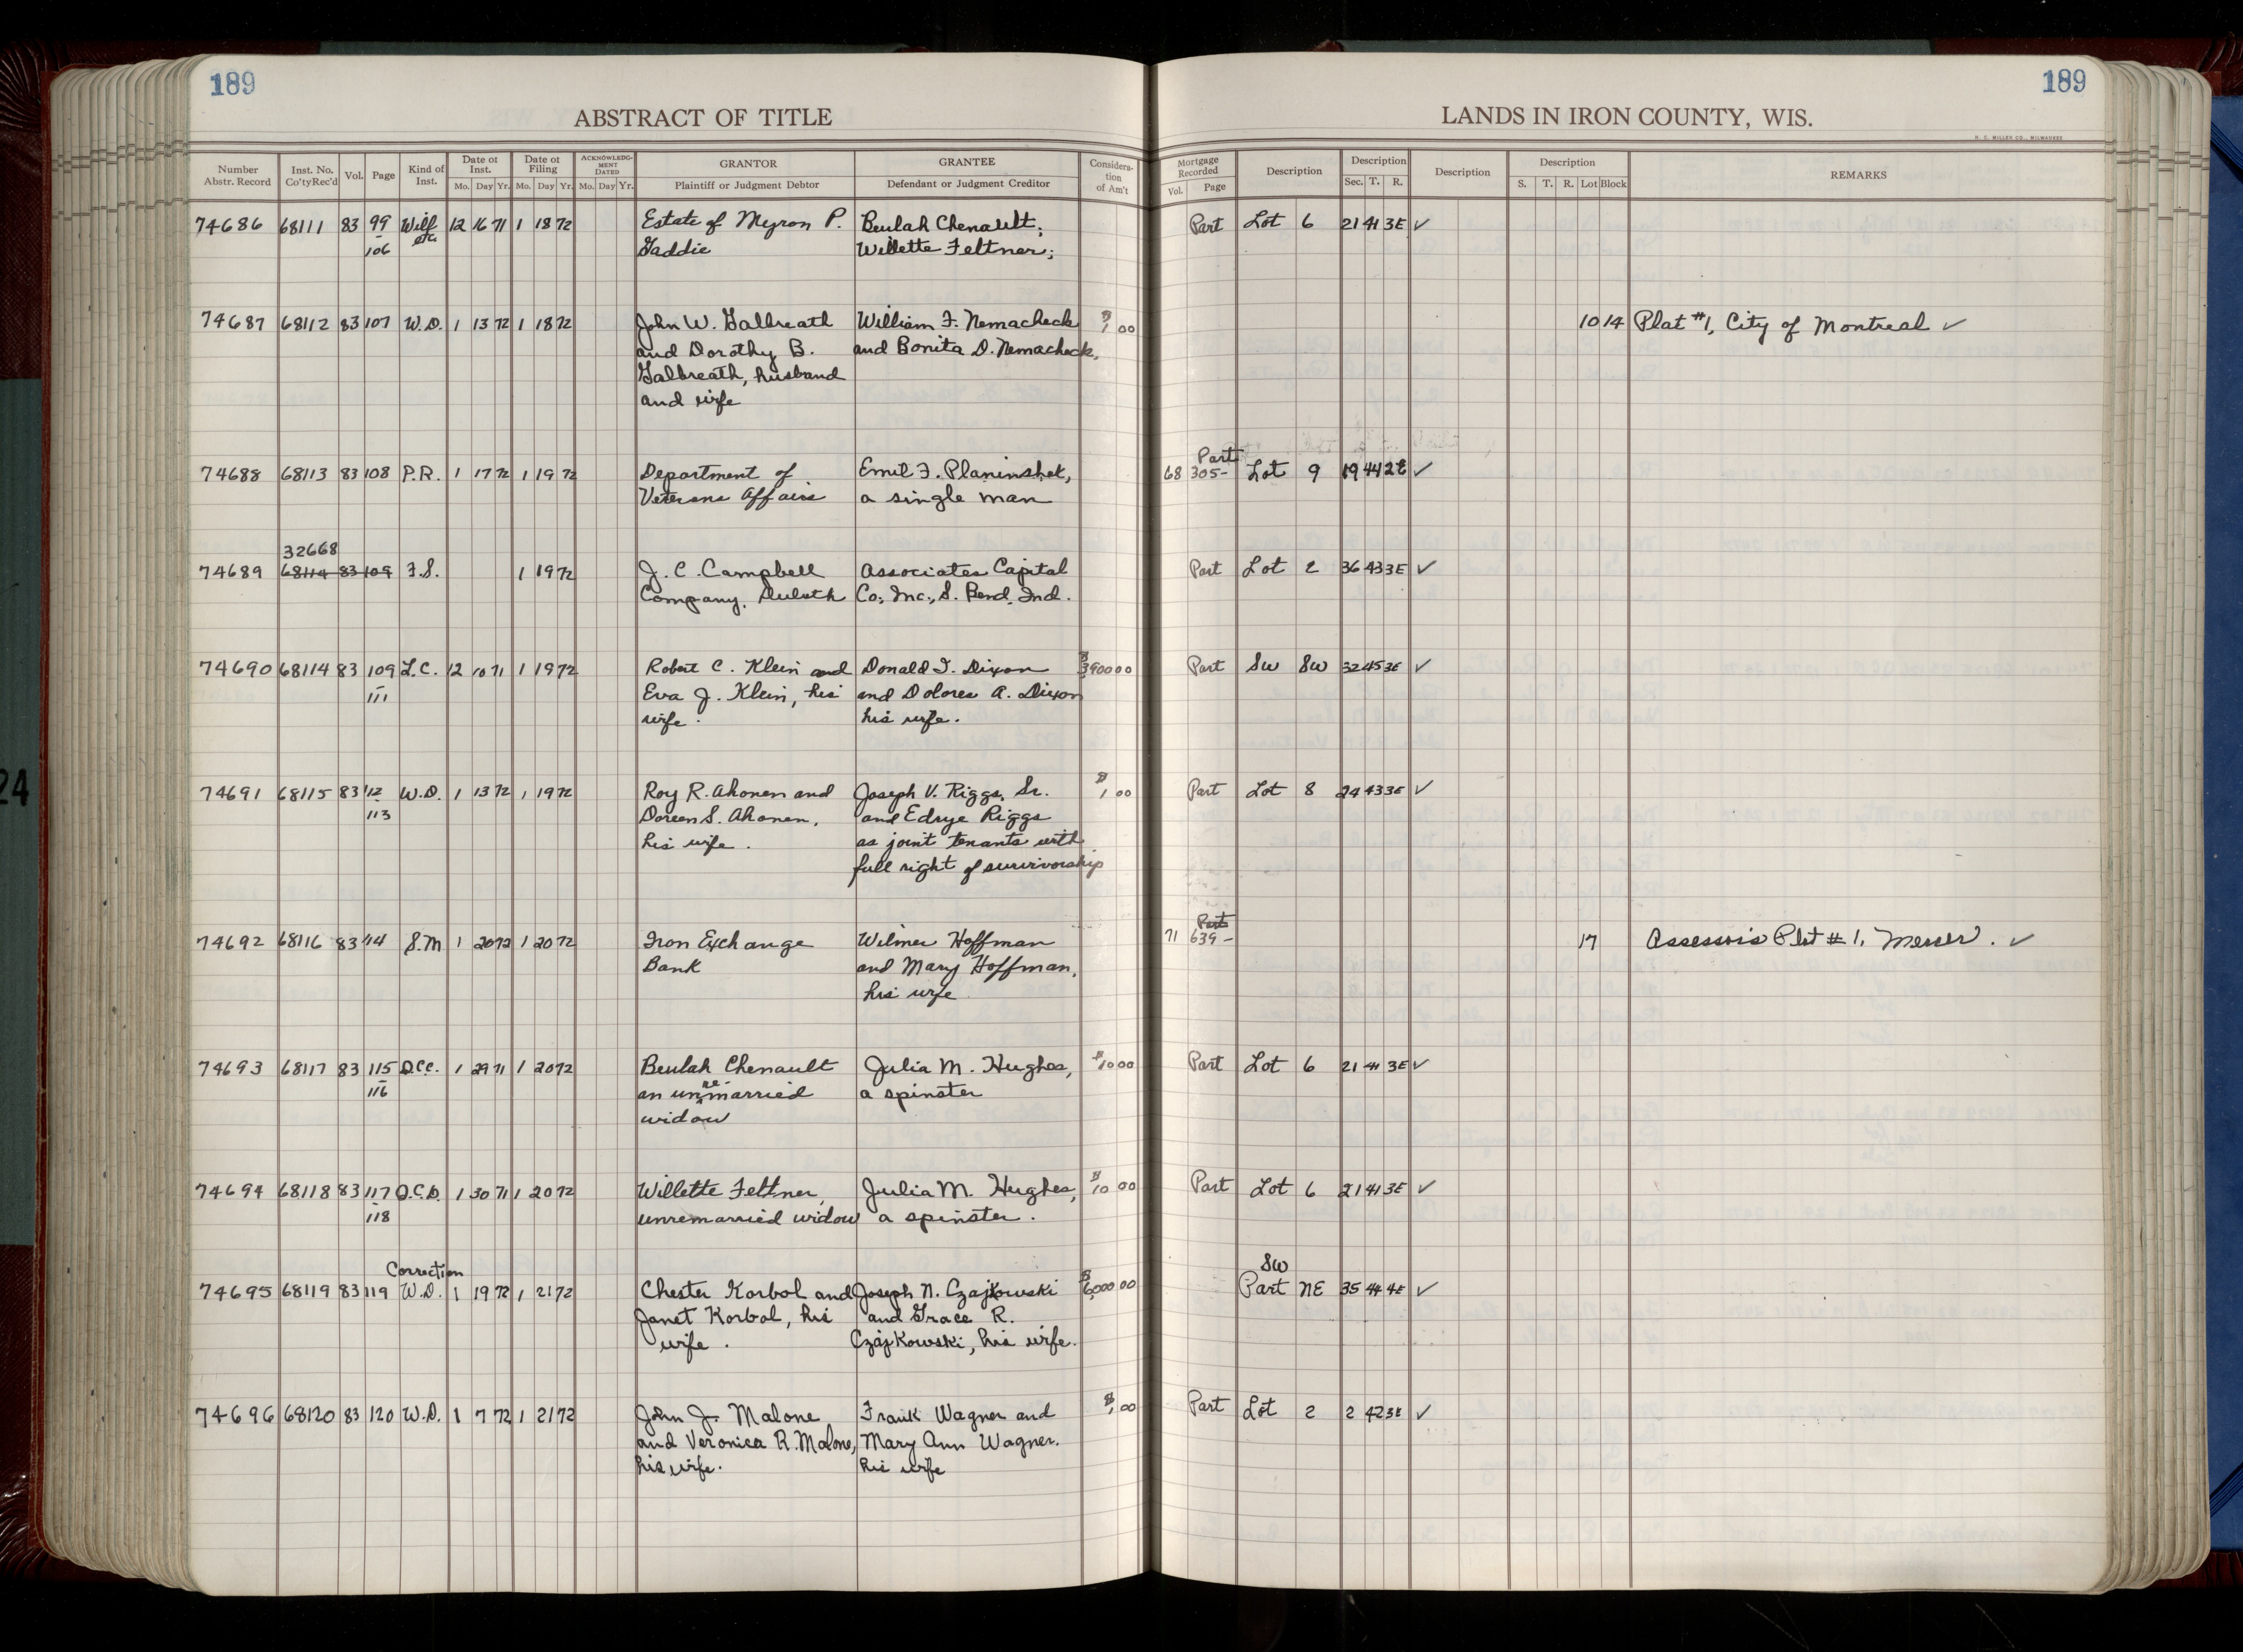 189
189
ABSTRACT OF TITLE
LANDS IN IRON COUNTY, WIS.
H. C. MILLER CO., MILWAUKEE
Number Abstr. Record | Inst. No. Co'tyRec'd | Vol. | Page | Kind of Inst. | Date of Inst. Mo. Day Yr. | Date of Filing Mo. Day Yr. | ACKNOWLEDGMENT DATED Mo. Day Yr. | GRANTOR Plaintiff or Judgment Debtor | GRANTEE Defendant or Judgment Creditor | Consideration of Am't | Mortgage Recorded Vol. Page | Description | Description Sec. T. R. | Description | Description S. T. R. Lot Block | REMARKS
74686 68111 83 99 Will 12 16 71 1 18 72 Estate of Myron P. Beulah Chenault; Part Lot 6 21 41 3E ✓
- etc.
106 Gaddie Willette Feltner;
74687 68112 83 107 W.D. 1 13 72 1 18 72 John W. Galbreath William F. Nemacheck $1 00 10 14 Plat #1, City of Montreal ✓
and Dorothy B. and Bonita D. Nemacheck,
Galbreath, husband
and wife
Part
74688 68113 83 108 P.R. 1 17 72 1 19 72 Department of Emil F. Planinshek, 68 305- Lot 9 19 44 2E ✓
Veterans Affairs a single man
32668
74689 68114 83 109 F.S. 1 19 72 J. C. Campbell Associates Capital Part Lot 2 36 43 3E ✓
Company, Duluth Co., Inc., S. Bend, Ind.
74690 68114 83 109 L.C. 12 10 71 1 19 72 Robert C. Klein and Donald F. Dixon $3900 00 Part SW SW 32 45 3E ✓
-
111 Eva J. Klein, his and Dolores A. Dixon
wife. his wife.
74691 68115 83 112 W.D. 1 13 72 1 19 72 Roy R. Ahonen and Joseph V. Riggs, Sr. $1 00 Part Lot 8 24 43 3E ✓
-
113 Doreen S. Ahonen, and Edrye Riggs
his wife. as joint tenants with
full right of survivorship
Part
74692 68116 83 114 S.M 1 20 72 1 20 72 Iron Exchange Wilmer Hoffman 71 639- 17 Assessor's Plat #1, Mercer. ✓
Bank and Mary Hoffman,
his wife
74693 68117 83 115 Q.C.C. 1 29 71 1 20 72 Beulah Chenault Julia M. Hughes, $10 00 Part Lot 6 21 41 3E ✓
- re-
116 an unmarried a spinster
widow
74694 68118 83 117 Q.C.D. 1 30 71 1 20 72 Willette Feltner, Julia M. Hughes, $10 00 Part Lot 6 21 41 3E ✓
-
118 unremarried widow a spinster.
Correction SW
74695 68119 83 119 W.D. 1 19 72 1 21 72 Chester Korbol and Joseph N. Czajkowski $6,000 00 Part NE 35 44 4E ✓
Janet Korbol, his and Grace R.
wife. Czajkowski, his wife.
74696 68120 83 120 W.D. 1 7 72 1 21 72 John J. Malone Frank Wagner and $1 00 Part Lot 2 2 42 3E ✓
and Veronica R. Malone, Mary Ann Wagner.
his wife. his wife
24